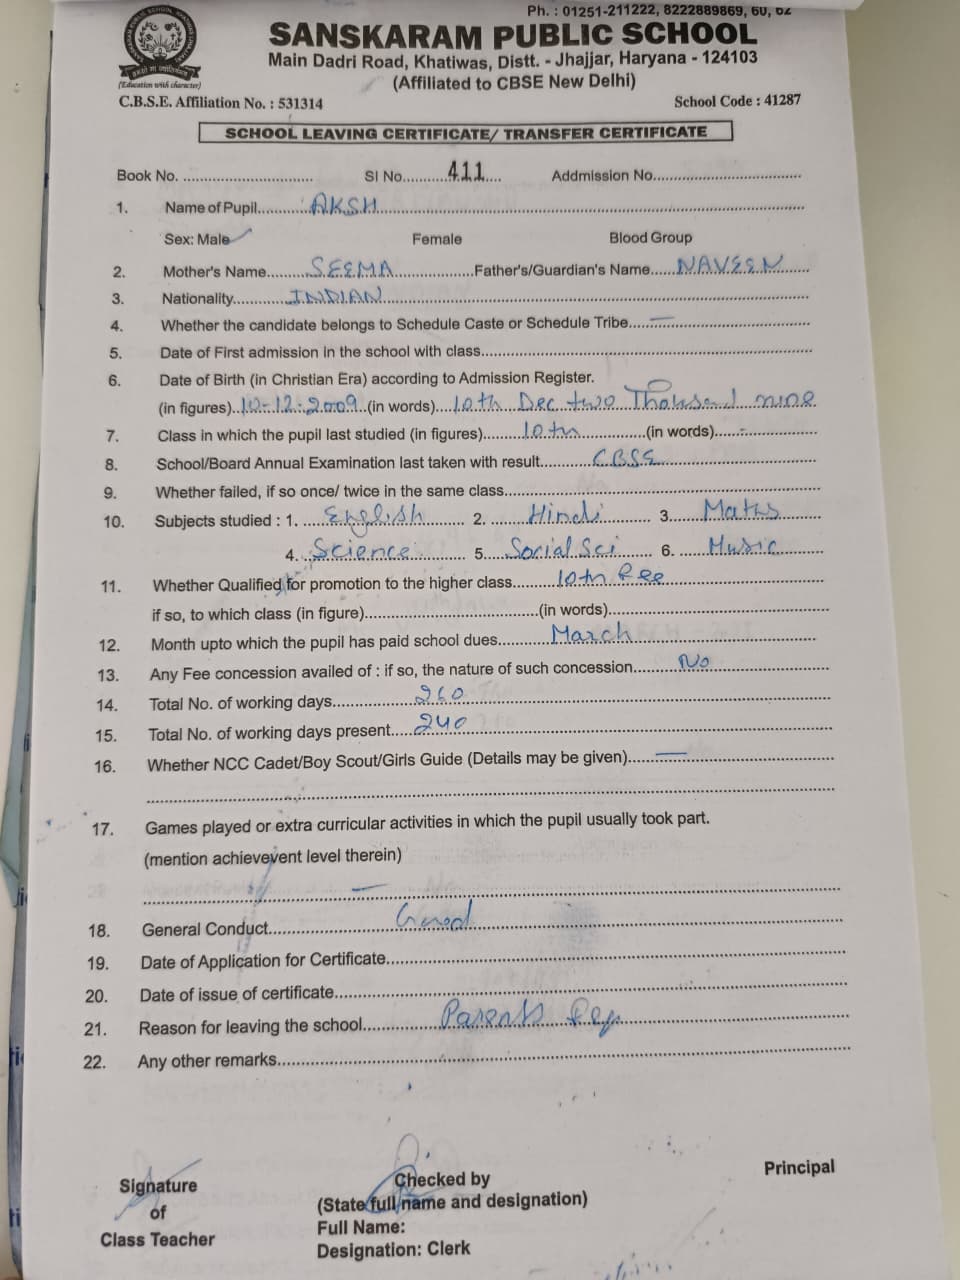 Ph. : 01251-211222, 8222889869, 60, 62
SANSKARAM PUBLIC SCHOOL
Main Dadri Road, Khatiwas, Distt. - Jhajjar, Haryana - 124103
(Affiliated to CBSE New Delhi)
(Education with character)
C.B.S.E. Affiliation No. : 531314 School Code : 41287
SCHOOL LEAVING CERTIFICATE/ TRANSFER CERTIFICATE
Book No. .............. SI No. 411 Addmission No. ..............
1. Name of Pupil AKSH
Sex: Male ✓ Female Blood Group
2. Mother's Name SEEMA Father's/Guardian's Name NAVEEN
3. Nationality INDIAN
4. Whether the candidate belongs to Schedule Caste or Schedule Tribe —
5. Date of First admission in the school with class
6. Date of Birth (in Christian Era) according to Admission Register.
(in figures) 10-12-2009 (in words) 10th Dec two Thousand nine
7. Class in which the pupil last studied (in figures) 10th (in words) -
8. School/Board Annual Examination last taken with result CBSE
9. Whether failed, if so once/ twice in the same class
10. Subjects studied : 1. English 2. Hindi 3. Maths
4. Science 5. Social Sci 6. Music
11. Whether Qualified for promotion to the higher class 10th
if so, to which class (in figure) (in words)
12. Month upto which the pupil has paid school dues March
13. Any Fee concession availed of : if so, the nature of such concession No
14. Total No. of working days 260
15. Total No. of working days present 240
16. Whether NCC Cadet/Boy Scout/Girls Guide (Details may be given) —
17. Games played or extra curricular activities in which the pupil usually took part.
(mention achievevent level therein)
—
18. General Conduct Good
19. Date of Application for Certificate
20. Date of issue of certificate
21. Reason for leaving the school Parents
22. Any other remarks
Principal
Signature Checked by
of (State full name and designation)
Class Teacher Full Name:
Designation: Clerk